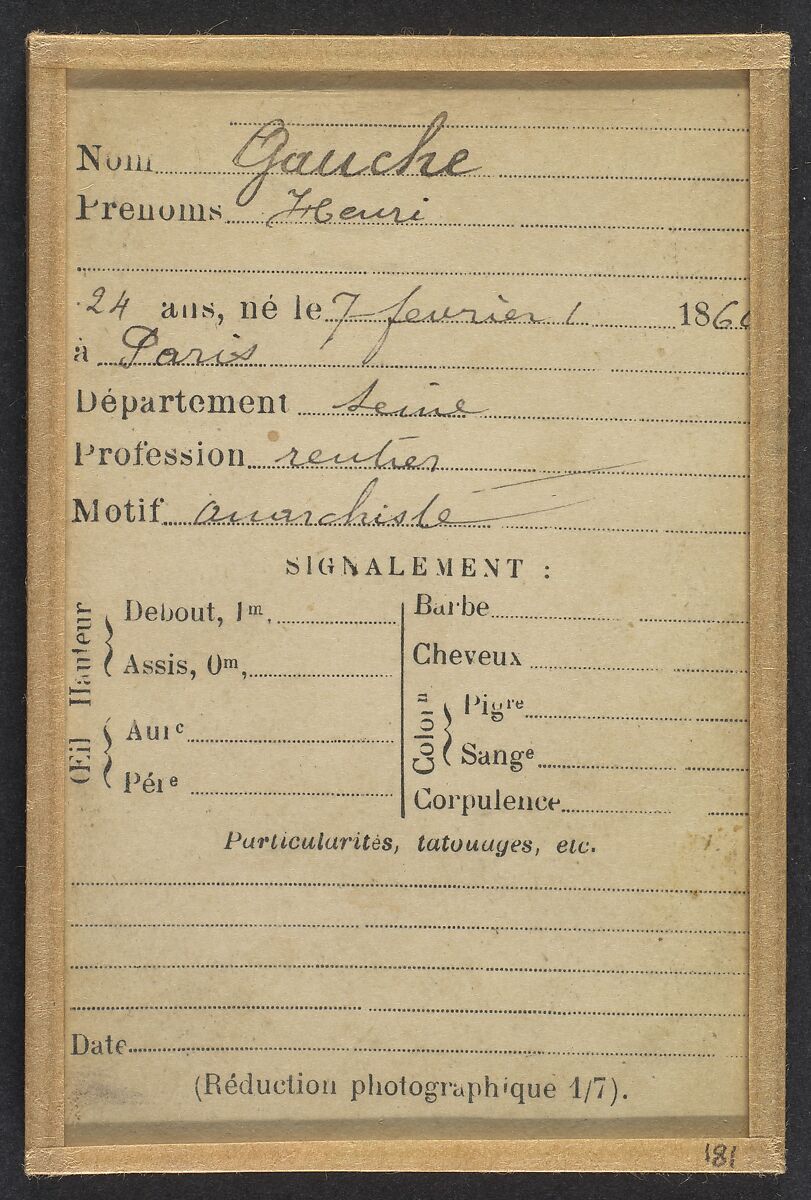 Nom Gauche
Prénoms Henri
24 ans, né le 7 fevrier 186
à Paris
Département Seine
Profession rentier
Motif anarchiste
SIGNALEMENT :
Hauteur
Debout, 1m,
Assis, 0m,
Œil
Aure
Pére
Barbe
Cheveux
Colorn
Pigre
Sange
Corpulence
Particularités, tatouages, etc.
Date
(Réduction photographique 1/7).
181